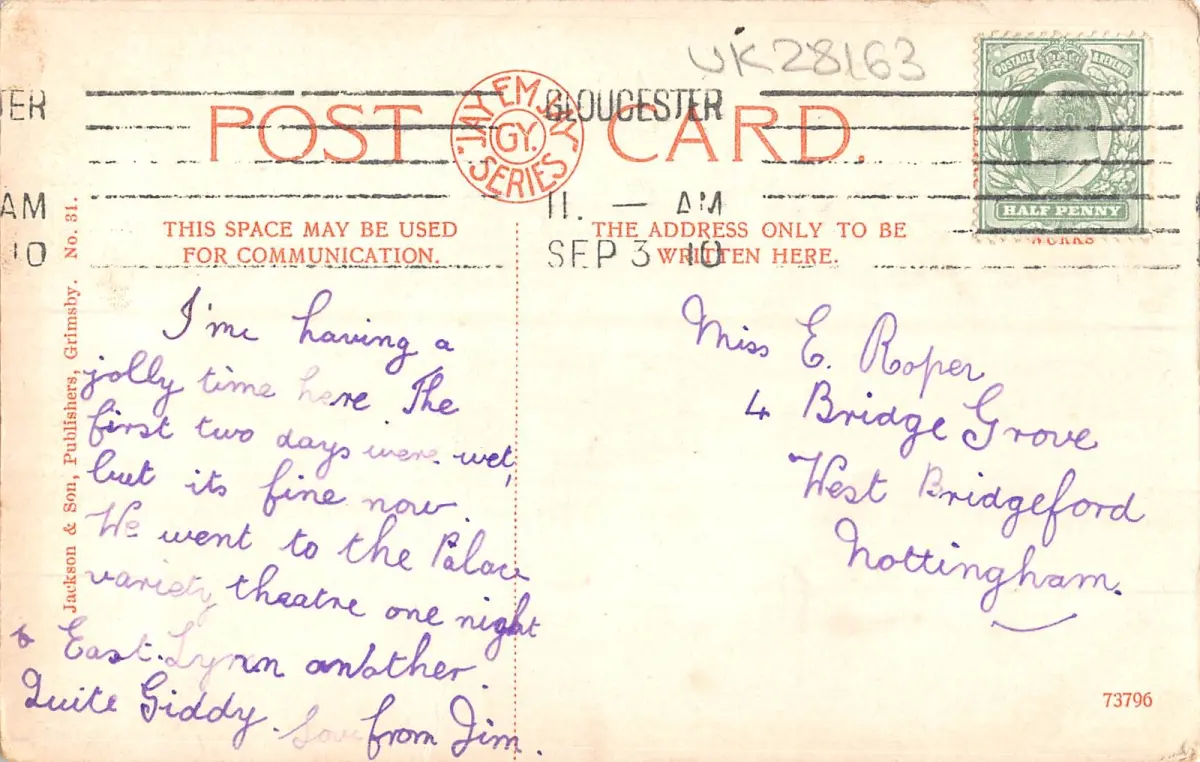 UK28163
POST CARD.
JAY EM JAY
GY.
SERIES
GLOUCESTER
11. — AM
SEP 3 10
TER
AM
10
POSTAGE & REVENUE
HALF PENNY
WORKS
THIS SPACE MAY BE USED
FOR COMMUNICATION.
THE ADDRESS ONLY TO BE
WRITTEN HERE.
Jackson & Son, Publishers, Grimsby. No. 31.
I'me having a
jolly time here The
first two days were wet,
but its fine now.
We went to the Palace
variety theatre one night
& East Lynn another.
Quite Giddy. Love from Jim.
Miss E. Roper
4 Bridge Grove
West Bridgeford
Nottingham.
73796